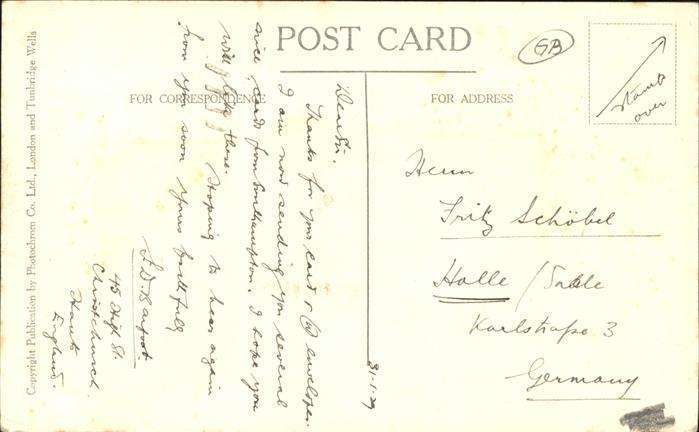 POST CARD
GB
stamp
over
FOR CORRESPONDENCE
FOR ADDRESS
Copyright Publication by Photochrom Co. Ltd., London and Tunbridge Wells
31-1-29
Dear Sir,
Thanks for your card & envelopes.
I am now sending you several
nice cards from Southampton. I hope you
will like these. Hoping to hear again
from you soon yours faithfully
45 High St.
Christchurch.
Hants
England.
Herrn
Fritz Schöbel
Halle / Saale
Karlstraße 3
Germany